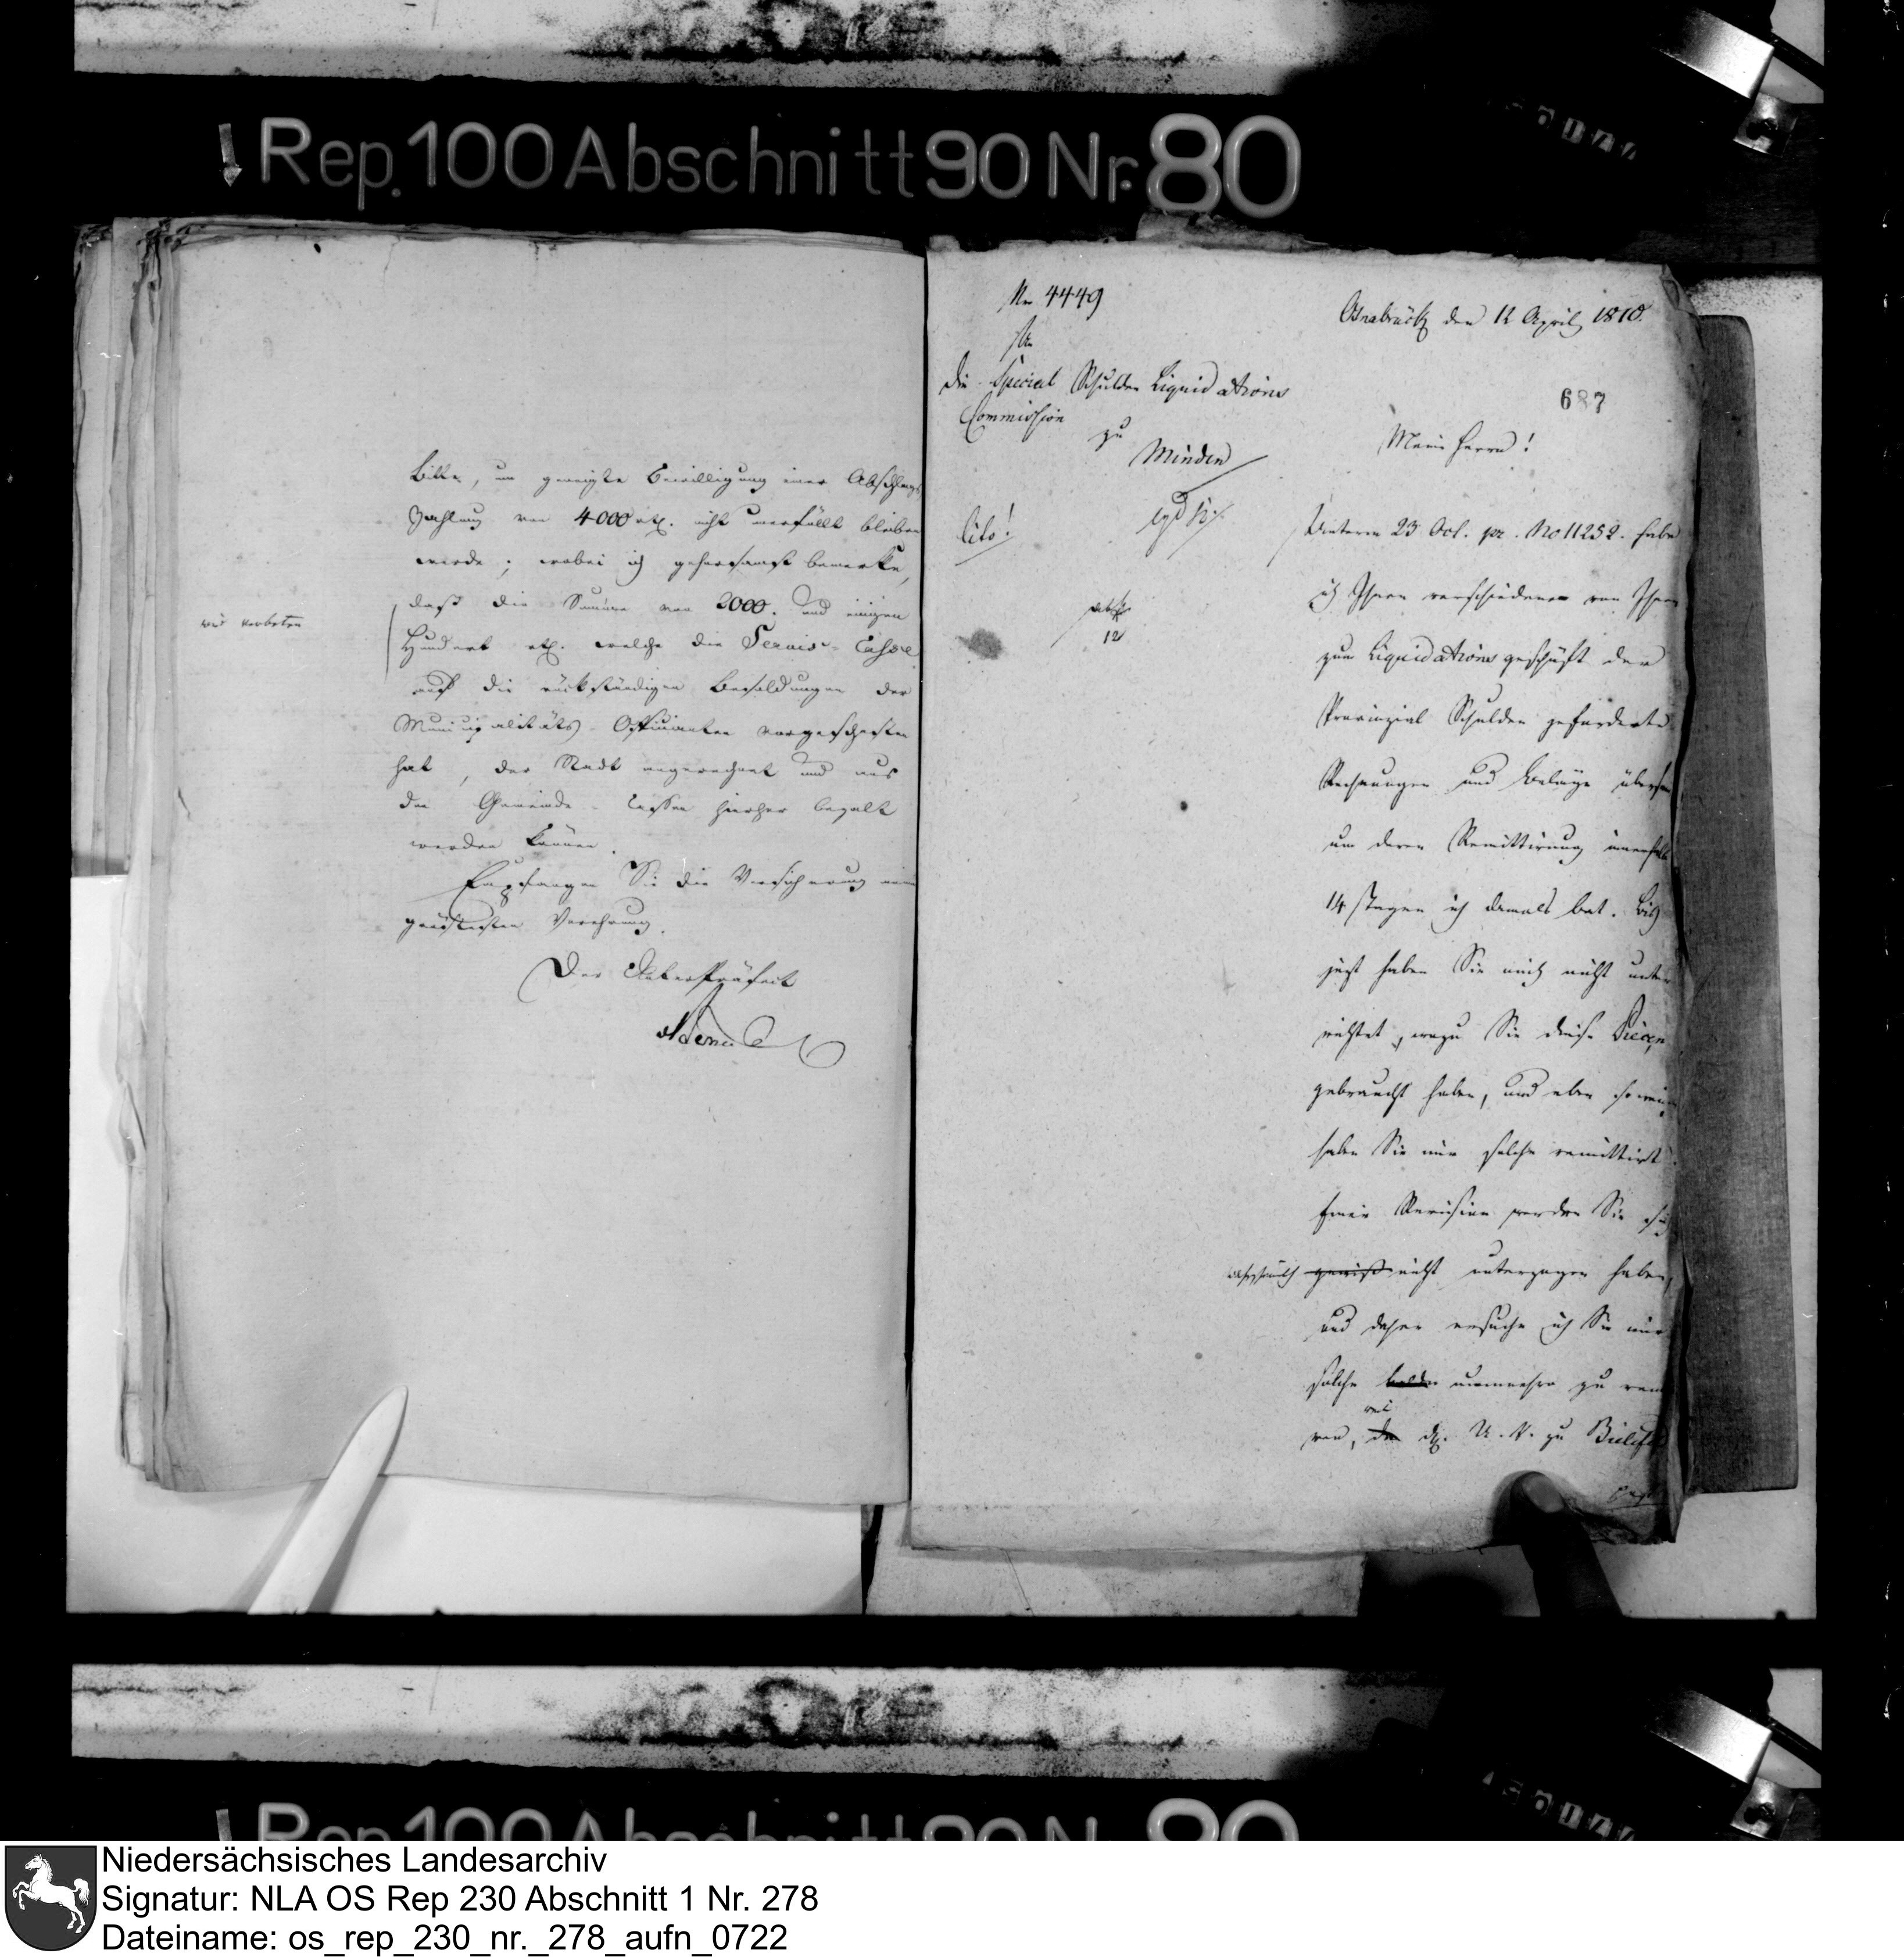 Rep. 100 Abschnitt 90 Nr. 80
Bitte, um geneigte Bewilligung einer Abschlags
Zahlung von 4000 rtl. nicht unerfüllt bleiben
werde; wobei ich gehorsamst bemerke,
daß die Summe von 2000. und einigen
Hundert rtl. welche die Servis-Casse
auf die rückständigen Besoldungen der
Municipalitäts-Officianten vorgeschossen
hat, der Stadt angerechnet und aus
den Gemeinde-Cassen hierher bezalt
werden können.
Empfangen Sie die Versicherung
Verehrung.
Der UnterPräfect
No 4449
An
die Special Schulden Liquidations
Commission
zu
Minden
Cito!
12
Osnabrück den 12 April 1810.
687
Meine Herrn!
Unterm 23 Oct. pr. No 11252. habe
ich Ihnen verschiedene von Ihnen
zum Liquidationsgeschäft der
Provinzial Schulden geforderte
Rechnungen und Belege übersandt
um deren Remittirung innerhalb
14 Tagen ich damals bat. Bis
jezt haben Sie mich nicht unter
richtet, wozu Sie diese Piècen
gebraucht haben, und eben so wenig
haben Sie mir solche remittirt.
Einer Revision werden Sie sie
gewiß nicht unterzogen haben,
und daher ersuche ich Sie mir
solche nunmehro zu rem
ren, der H. U. P. zu Bielefeld
Niedersächsisches Landesarchiv
Signatur: NLA OS Rep 230 Abschnitt 1 Nr. 278
Dateiname: os_rep_230_nr._278_aufn_0722